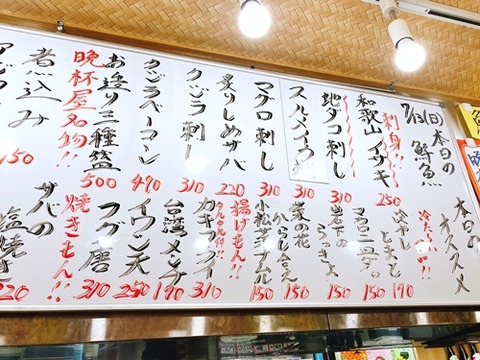 7/13(日)本日の鮮魚
刺身!!
和歌山イサキ 250
地ダコ刺し 310
スルメイカ 310
マグロ刺し 310
炙りしめサバ 220
クジラ刺し 310
クジラベーコン 490
お造り三種盛 500
晩杯屋名物!!
煮込み 150
本日のオススメ
冷たいもの!!
冷やしとまと 170
マカロニサラダ 150
岩下のらっきょ 150
菜の花からし和え 150
小松菜ナムル 150
揚げもん!!
カキフライ 310
タルタル付!!
台湾メンチ 190
イワシ天 250
フグ唐 310
焼きもん!!
サバの塩焼き 220